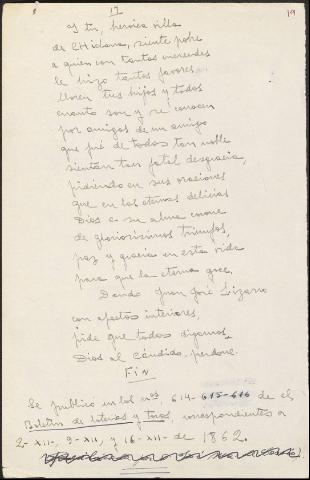 17
19
Y tú, heroica villa
de Chiclana, siente pobre
a quien con tantas mercedes
le hizo tantos favores
lloren tus hijos y todos
cuanto son y se conocen
por amigos de un amigo
que fué de todos tan noble
sientan tan fatal desgracia,
pidiendo en sus oraciones
que en las eternas delicias
Dios a su alma corone
de gloriosísimos triunfos,
paz y gracia en esta vida
para que la eterna goce,
Dando Juan José Lizano
con afectos interiores,
pide que todos digamos
Dios al Cándido perdone.
Fin
Se publicó en los nos. 614-615-616 de el
Boletín de loterías y toros, correspondientes a
2-XII-, 9-XII, y 16-XII- de 1862.